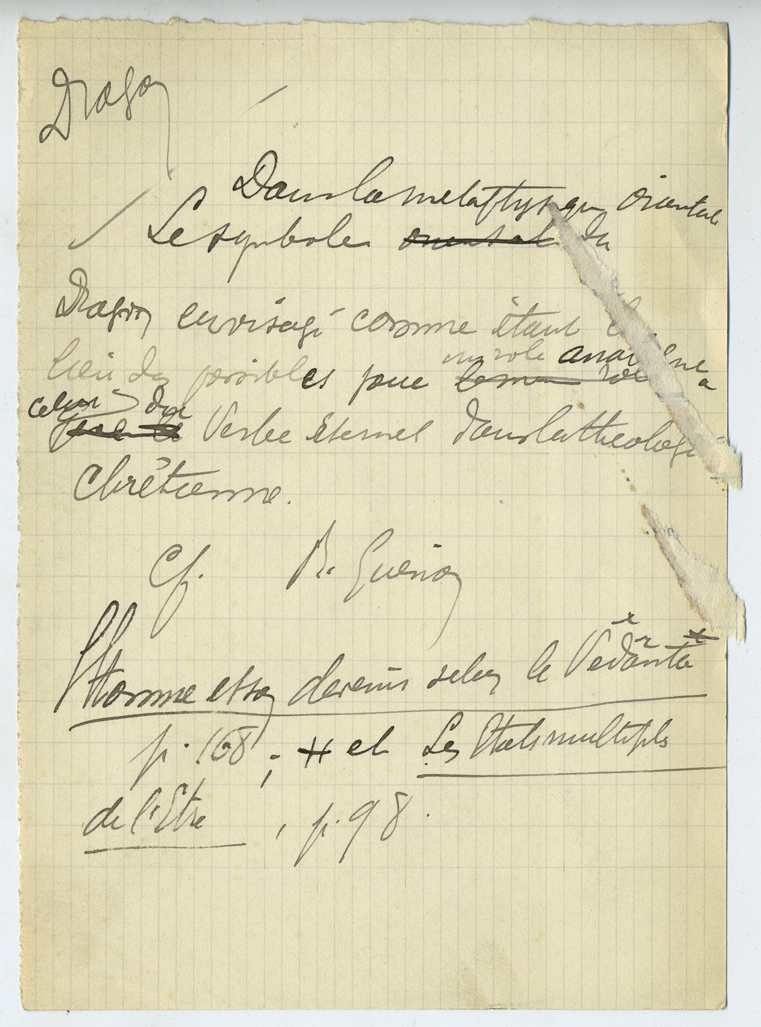 Dragon
Dans la métaphysique orientale
Le symbole oriental du
Dragon envisagé comme étant le
un role analogue a
lieu des possibles joue le meme role
celui du
que le Verbe Eternel dans la théologie
Chrétienne.
Cf. R. Guénon
l'Homme et son devenir selon le Vêdânta
p. 168 ; et Les Etats multiples
de l'Etre, p. 98.